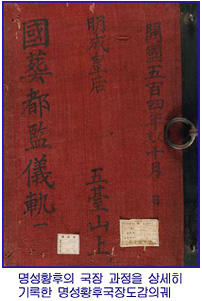 開國五百四年 十月 日
明成皇后 五臺山上
國葬都監儀軌 一
명성황후의 국장 과정을 상세히
기록한 명성황후국장도감의궤